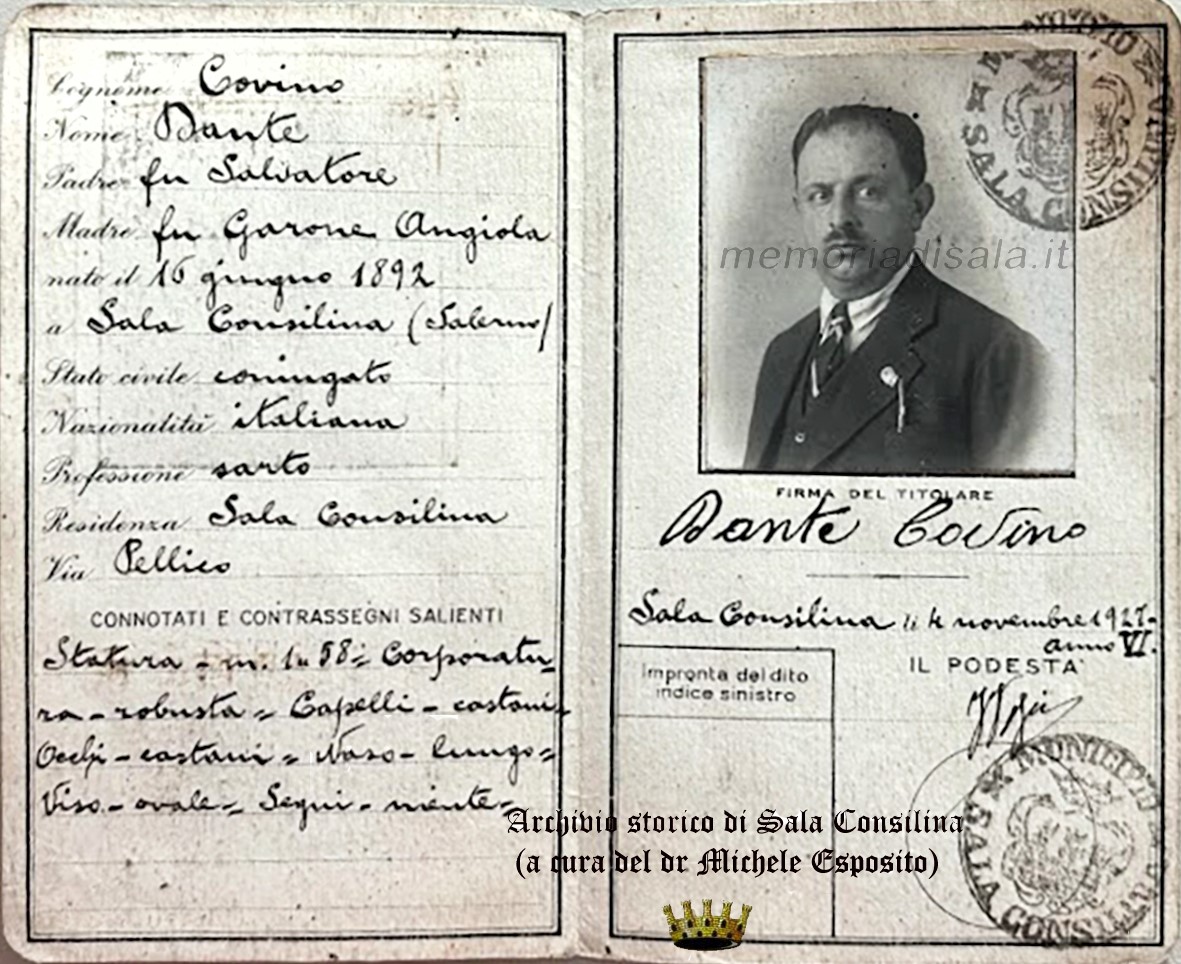 Cognome Covino
Nome Dante
Padre fu Salvatore
Madre fu Garone Angiola
nato il 16 giugno 1892
a Sala Consilina (Salerno)
Stato civile coniugato
Nazionalità italiana
Professione sarto
Residenza Sala Consilina
Via Pellico
CONNOTATI E CONTRASSEGNI SALIENTI
Statura - m. 1 58 = Corporatu-
ra - robusta = Capelli - castani =
Occhi - castani = Naso - lungo =
Viso - ovale = Segni - niente -
MUNICIPIO
SALA CONSILINA
memoriadisala.it
FIRMA DEL TITOLARE
Dante Covino
Sala Consilina li 4 novembre 1927-
anno VI.
IL PODESTA'
Impronta del dito
indice sinistro
MUNICIPIO
SALA CONSILINA
Archivio storico di Sala Consilina
(a cura del dr Michele Esposito)